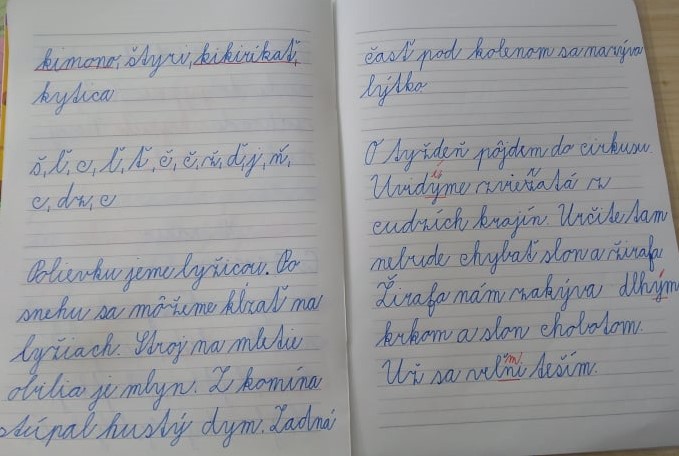 kimono, štyri, kikiríkať,
kytica
š, ľ, c, ľ, ť, č, č, ž, ď, j, ň,
c, dz, c
Polievku jeme lyžicou. Po
snehu sa môžeme kĺzať na
lyžiach. Stroj na mletie
obilia je mlyn. Z komína
stúpal hustý dym. Zadná
časť pod kolenom sa nazýva
lýtko
O týždeň pôjdem do cirkusu.
Uvidýme zvieražatá z
cudzích krajín. Určite tam
nebude chybať slon a žirafa
Žirafa nám zakýva dlhým
krkom a slon chobotom.
Už sa veľni teším.